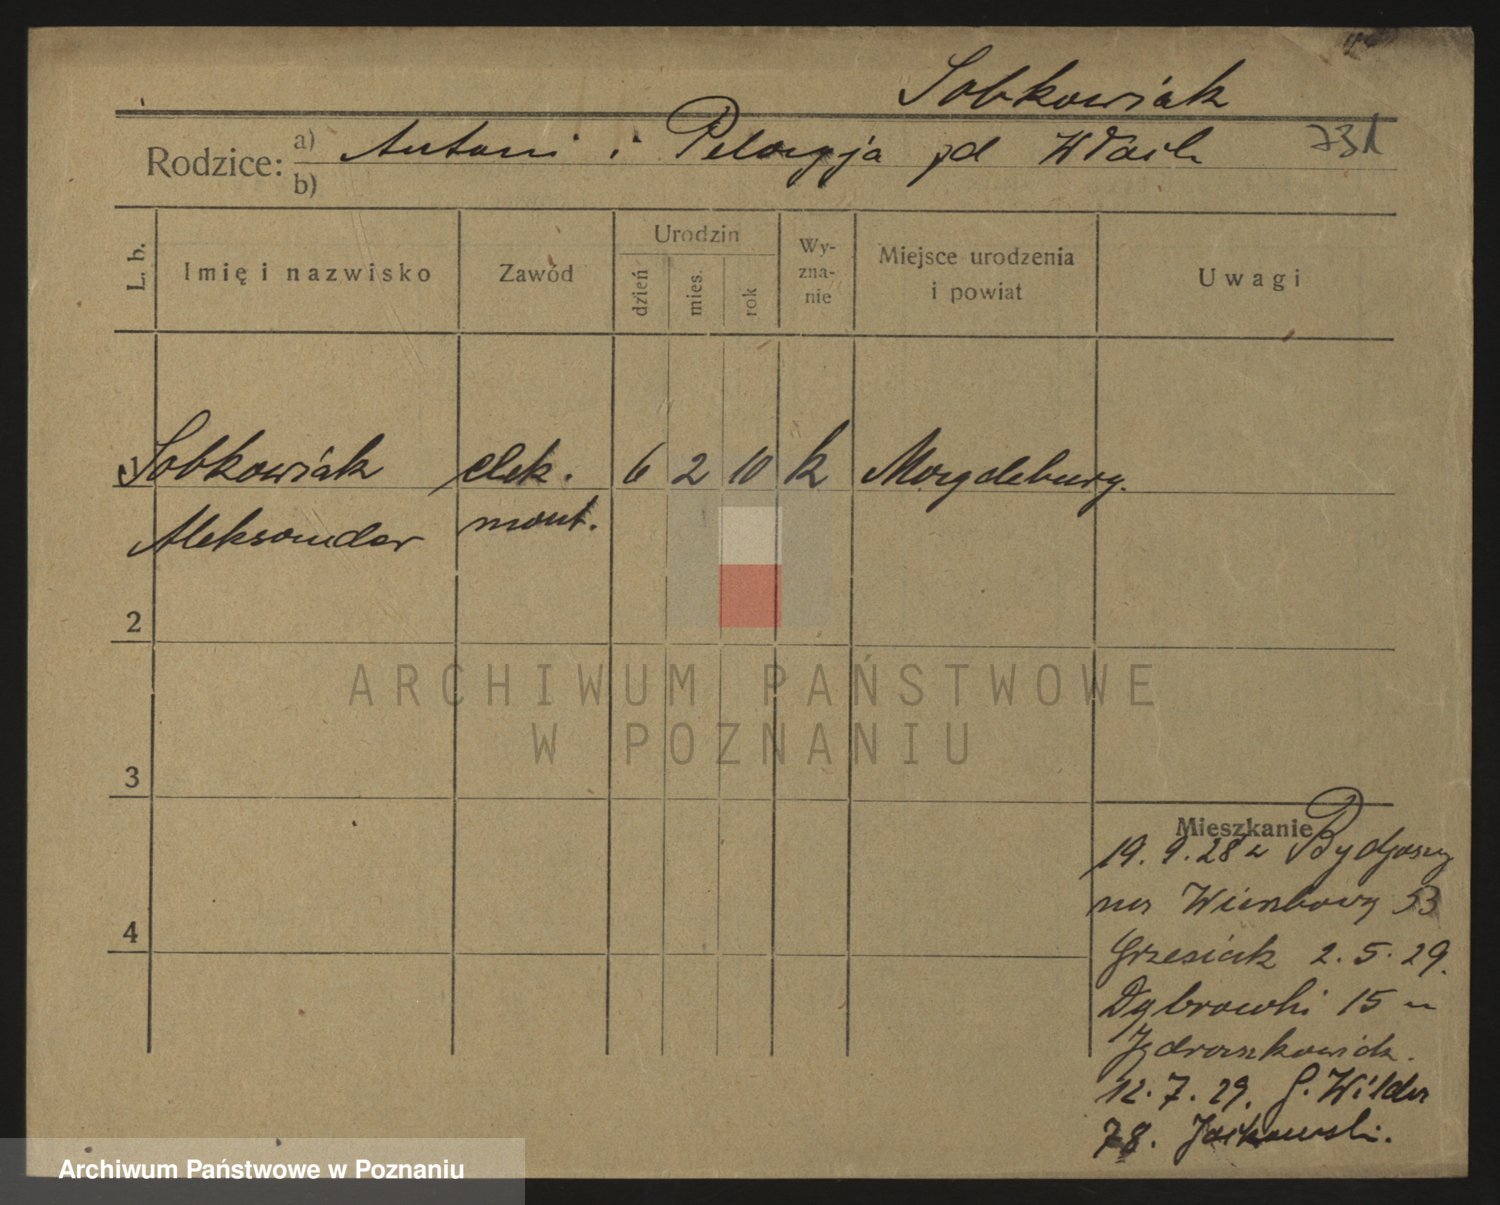 Sobkowiak
Rodzice: a) Antoni i Pelagja pd Wlach 731
b)
L. b. Imię i nazwisko Zawód Urodzin dzień mies. rok Wyznanie Miejsce urodzenia i powiat Uwagi
1 Sobkowiak elek. 6 2 10 k Magdeburg.
Aleksander mont.
2
3
4
Mieszkanie
19. 9. 28 z Bydgoszczy
na 53
Grzesiak 2. 5. 29.
Dąbrowski 15
Jędraszkowiak.
12. 7. 29. G. Wilda
78. Jackowski.
ARCHIWUM PAŃSTWOWE
W POZNANIU
Archiwum Państwowe w Poznaniu